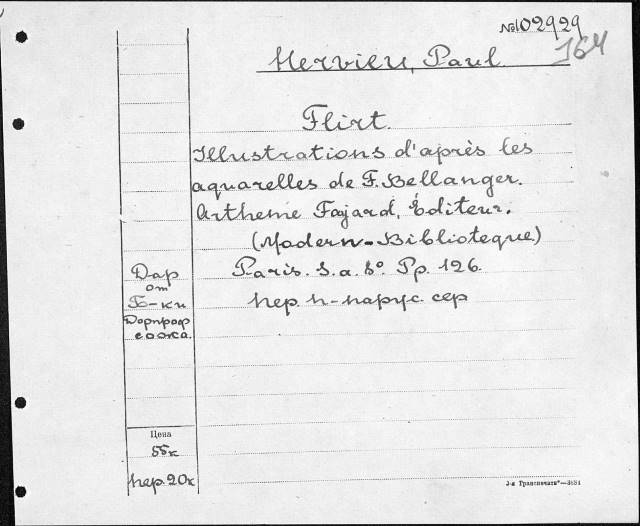 № 102929
164
Hervieu, Paul.
Flirt.
Illustrations d'après les
aquarelles de F. Bellanger.
Artheme Fajard, Éditeur.
(Modern-Biblioteque)
Paris. S. a. 8° Pp. 126.
пер. п-парус. сер
Дар
от
Б-ки
Дорпроф
сожа.
Цена
55к
пер. 20к
3-я Транспечать—3684